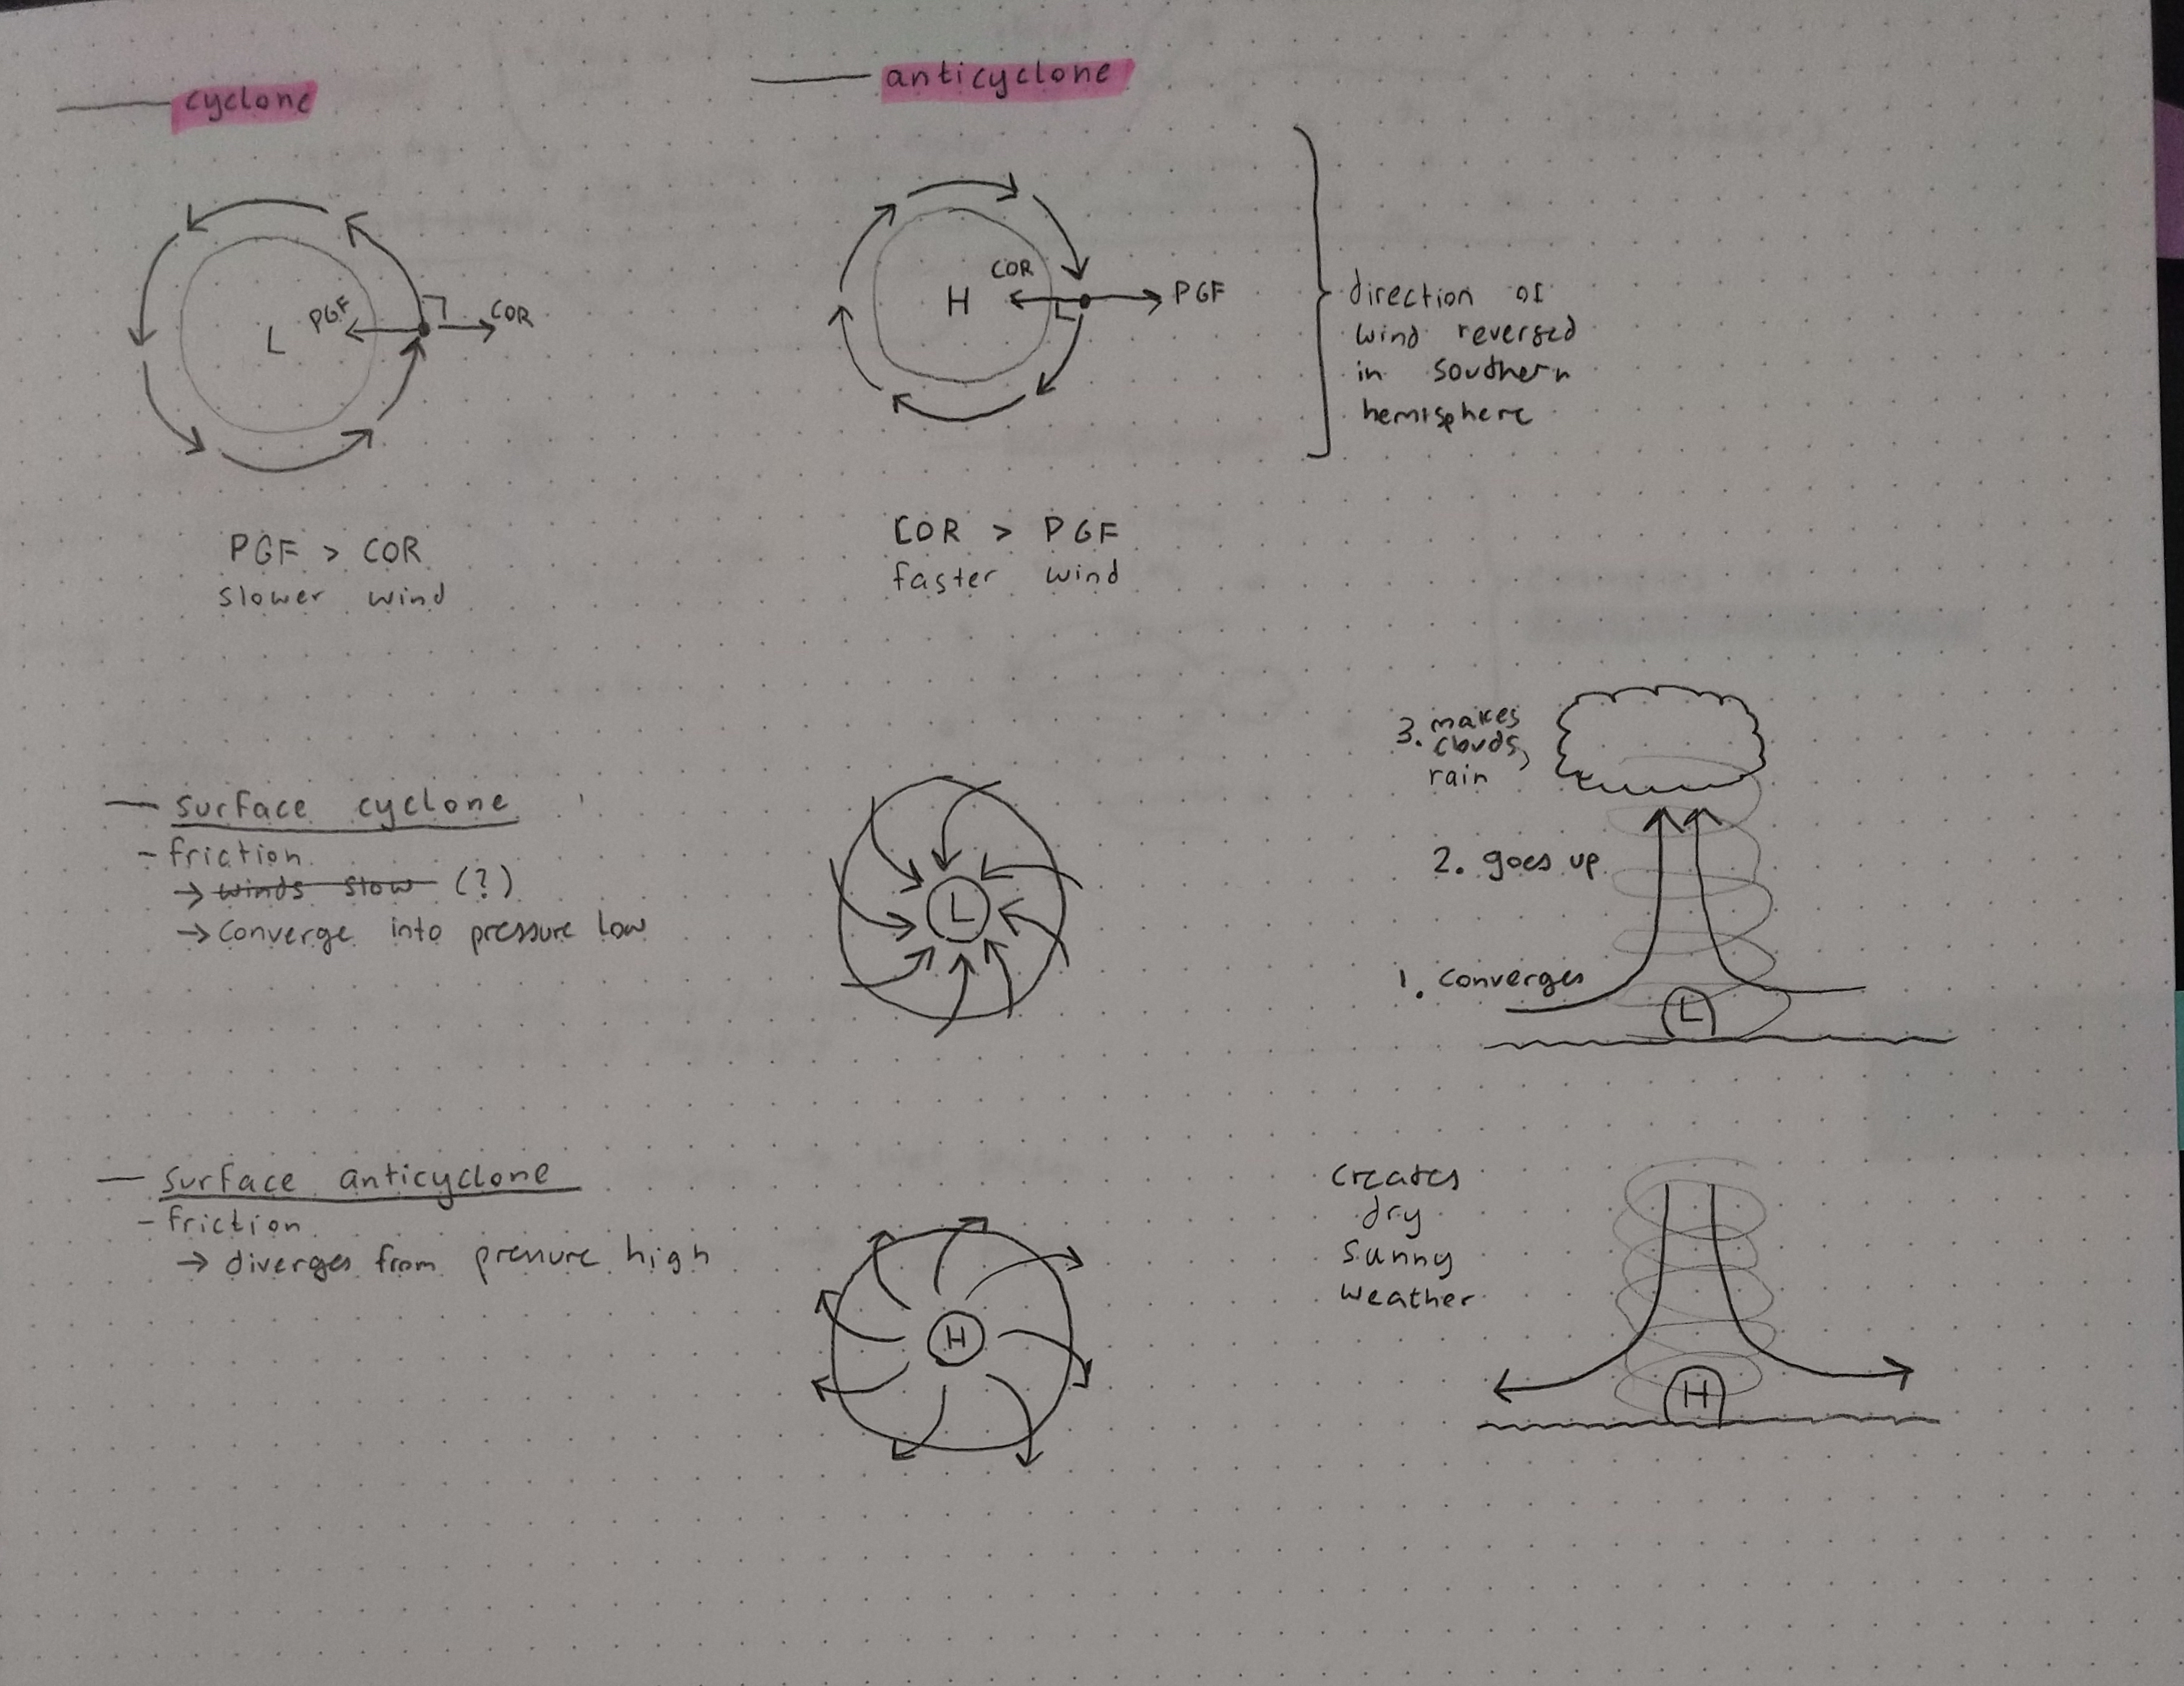 cyclone
anticyclone
L
PGF
COR
COR
H
PGF
direction of
wind reversed
in southern
hemisphere
PGF > COR
slower wind
COR > PGF
faster wind
— surface cyclone
- friction
→ winds slow (?)
→ converge into pressure low
L
3. makes
clouds,
rain
2. goes up
1. converges
L
— surface anticyclone
- friction
→ diverges from pressure high
H
creates
dry
sunny
weather
H